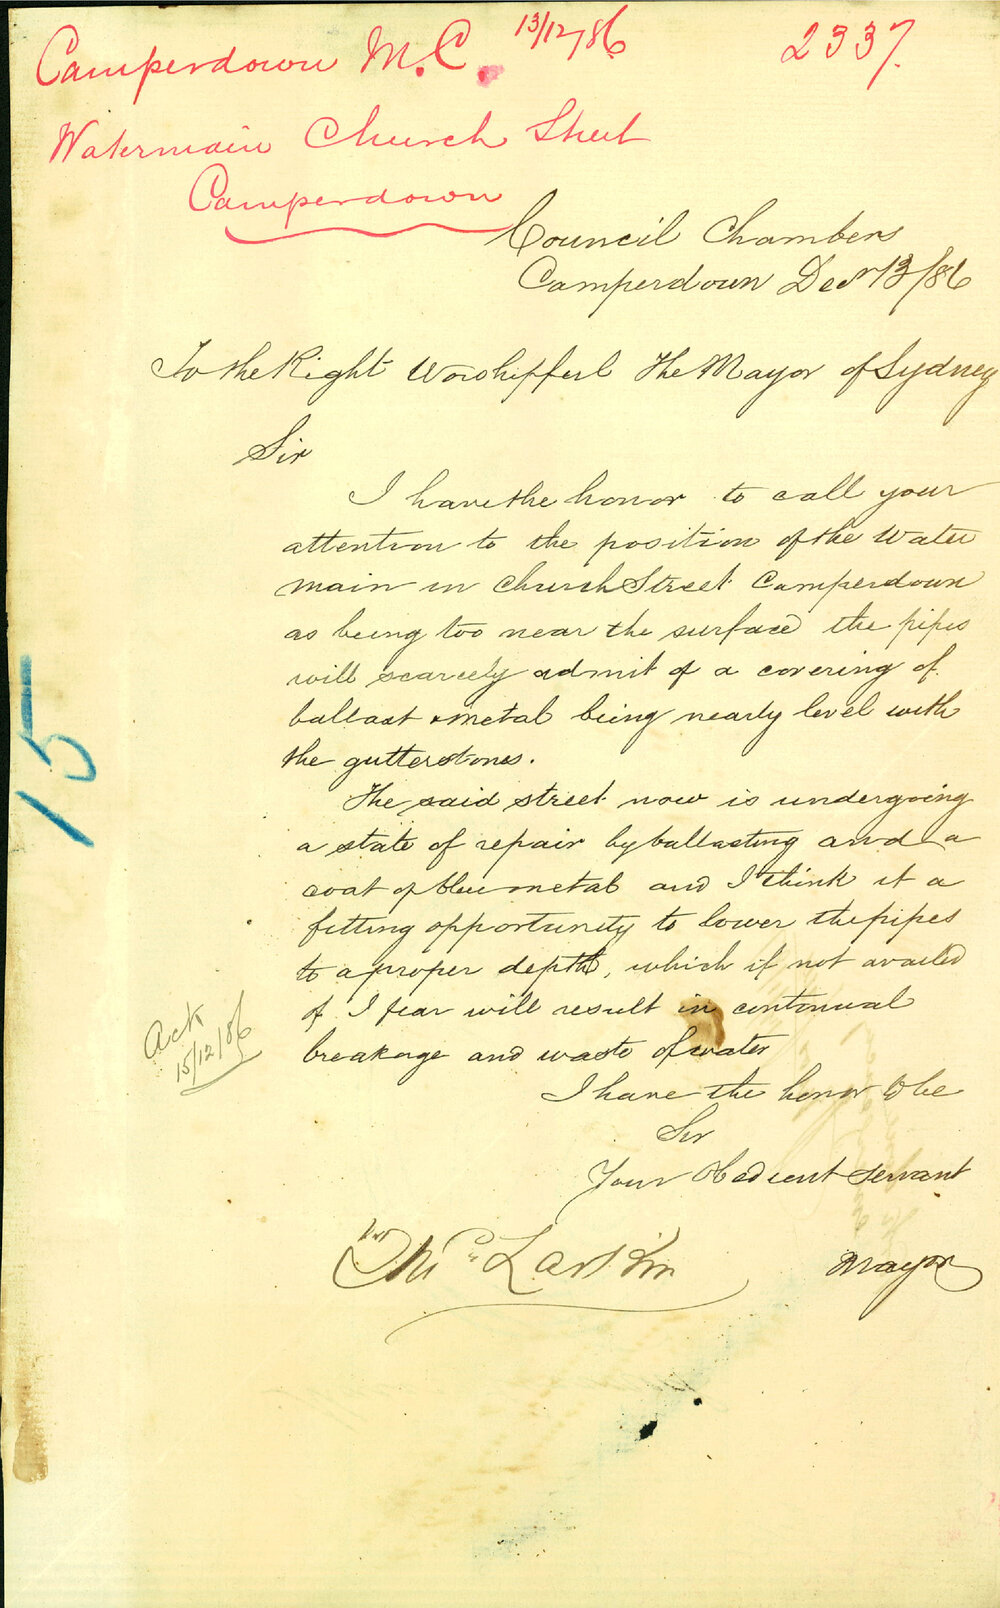 Camperdown M.C. 13/12/86 2337.
Watermain Church Street
Camperdown
Council Chambers
Camperdown Decr 13/86
To the Right Worshipfful The Mayor of Sydney
Sir
I have the honor to call your
attention to the position of the Water
main in Church Street Camperdown
as being too near the surface the pipes
will scarcely admit of a covering of
ballast & metal being nearly level with
the gutterstones.
The said street now is undergoing
a state of repair by ballasting and a
coat of blue metal and I think it a
fitting opportunity to lower the pipes
to a proper depth, which if not availed
of I fear will result in contonual
breakage and waste of water
I have the honor to be
Sir
Your Obedient Servant
Larkin Mayor
Ack
15/12/86
15